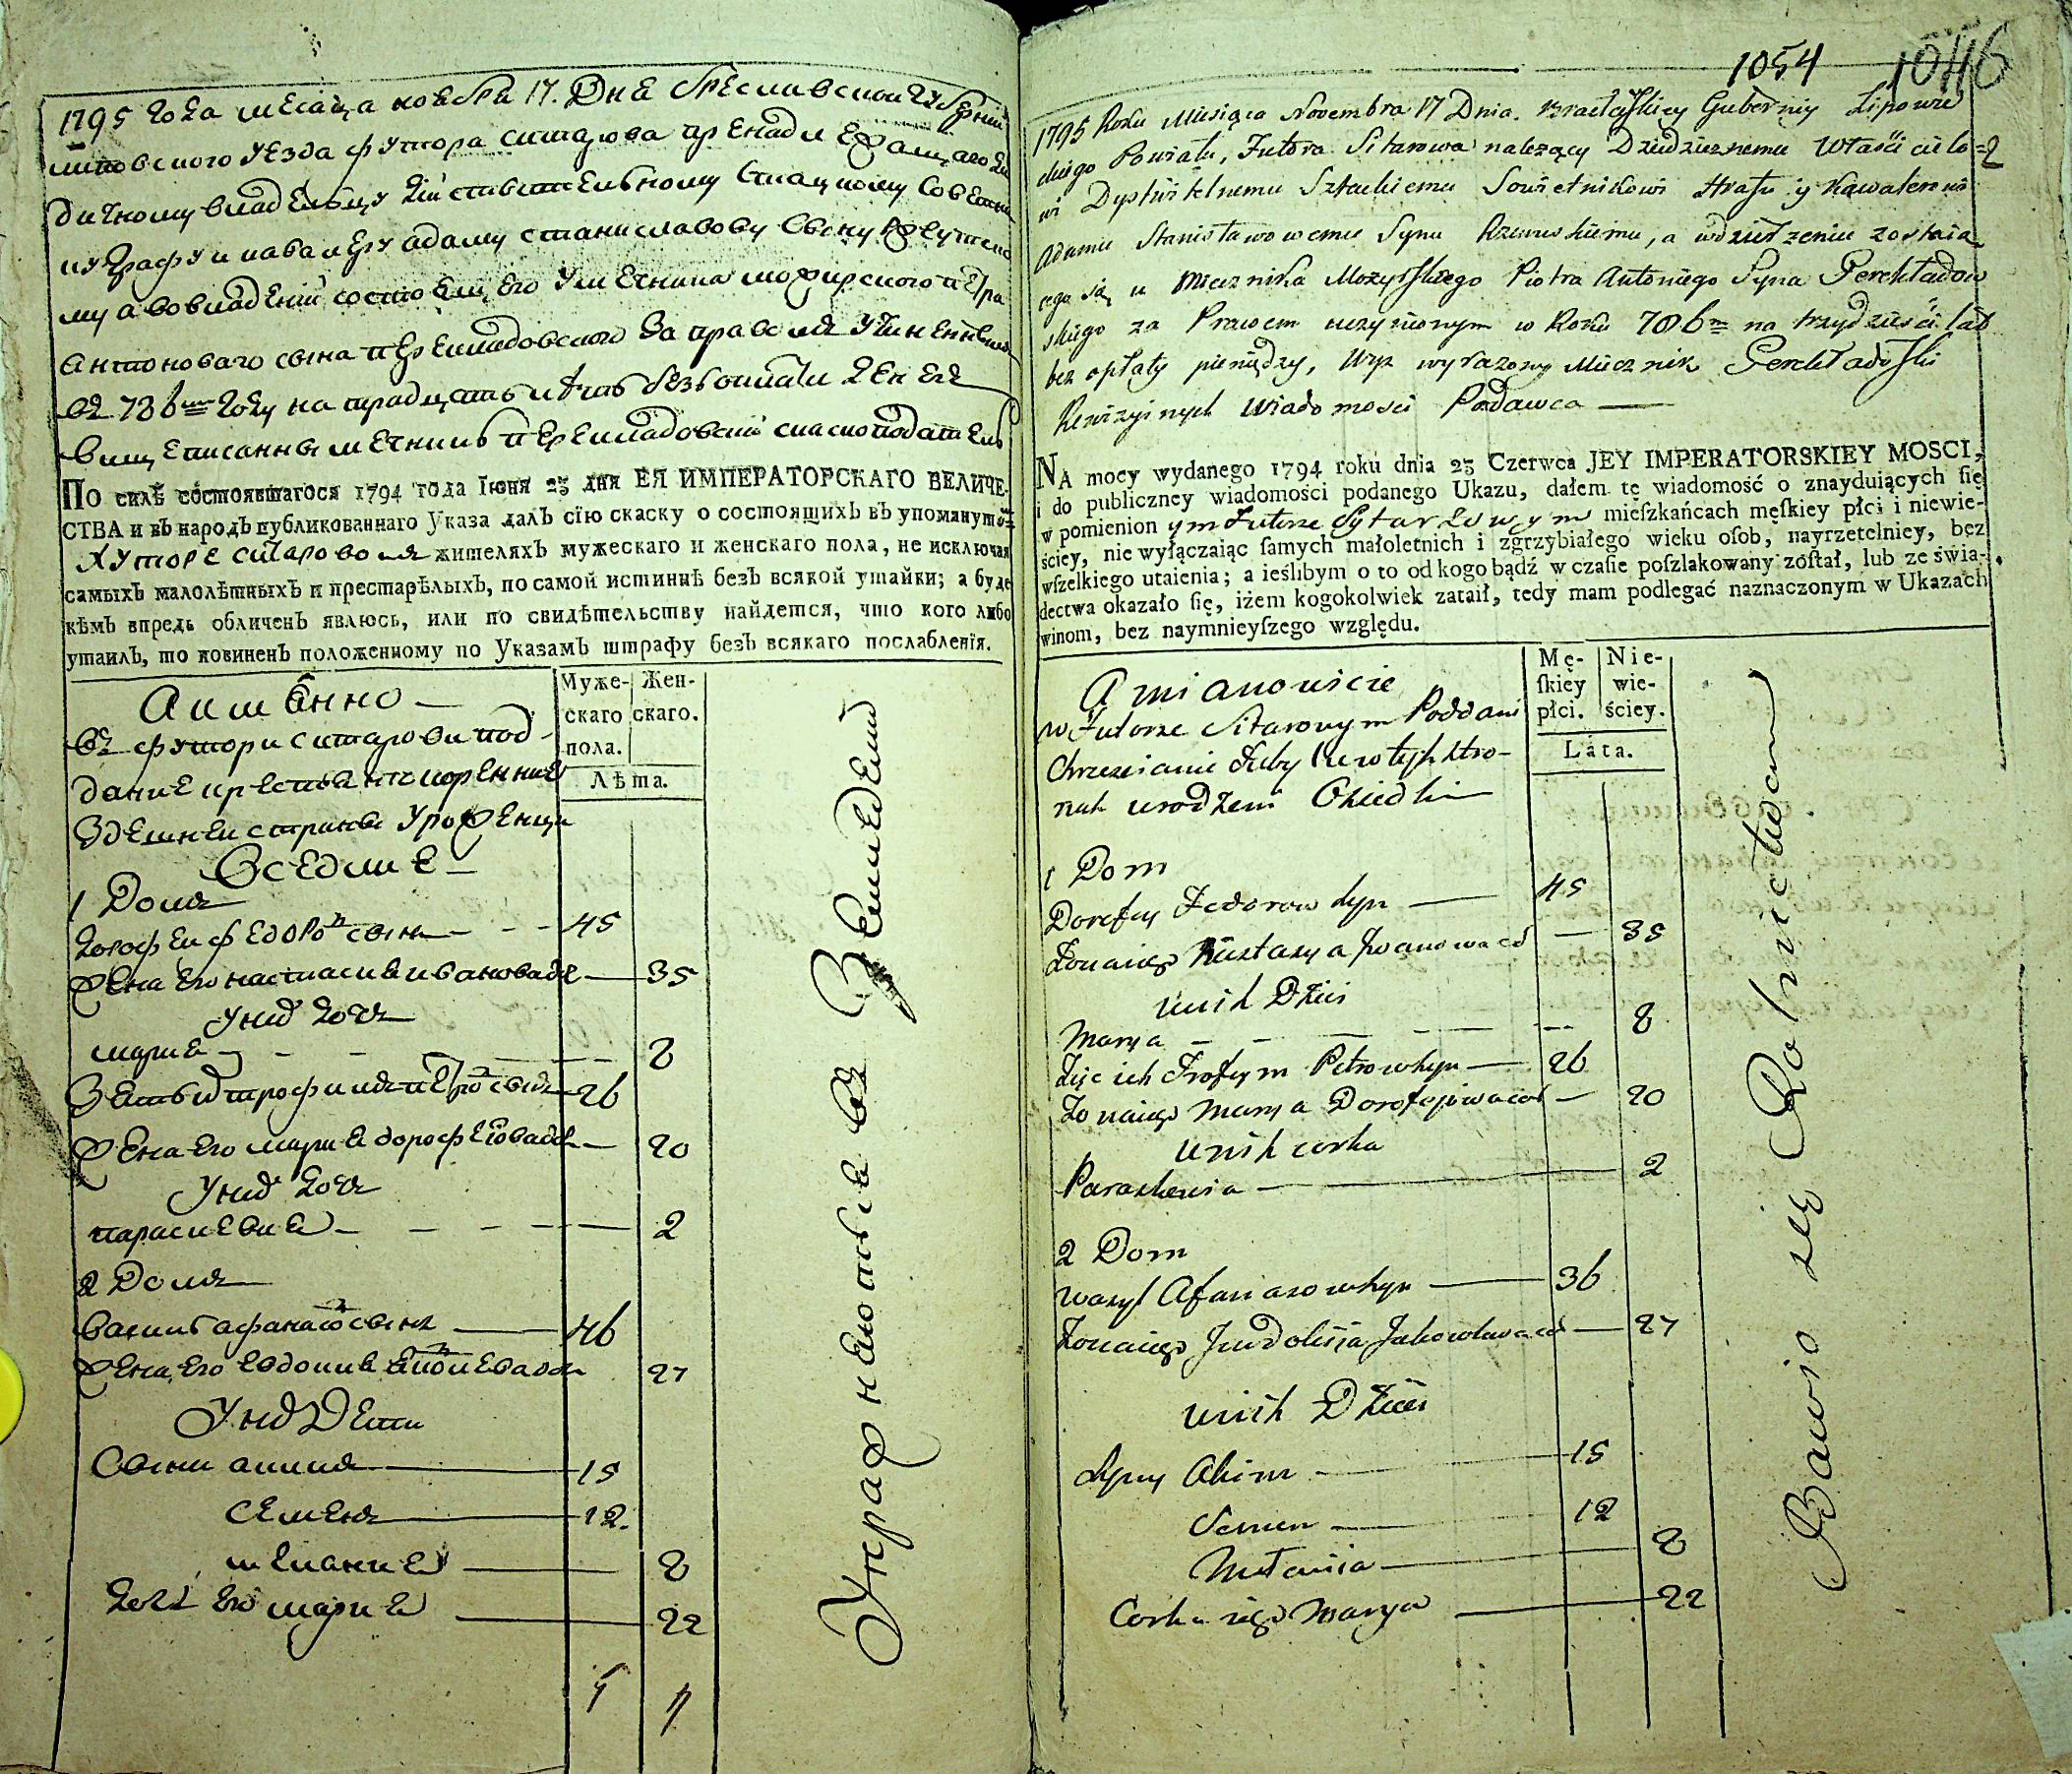 1795 года месяца ноября 17. Дня Бреславской губернии
липовского уезда футора ситарова пренадлежащаго
дичному владельцу Действительному Стацкому Советни
ку Графу и кавалеру адаму станиславову Сыну Ржевуско
му а во владении состоящего у мечника мозирского петра
антонового сына перекладовского за правом учиненным
въ 786м году на традцать лет без оплати денег
вищеписанны мечник перекладовский сказкоподатель
По силѣ состоявшагося 1794 года Іюня 23 дня ЕЯ ИМПЕРАТОРСКАГО ВЕЛИЧЕ-
СТВА и въ народъ публикованнаго Указа далъ сїю скаску о состоящихъ въ упомянуто=
хуторе ситаровомъ жителяхъ мужескаго и женскаго пола, не исключая
самыхъ малолѣтныхъ и престарѣлыхъ, по самой истиннѣ безъ всякой утайки; а буде
кѣмъ впредь обличенъ явлюсь, или по свидѣтельству найдется, что кого либо
утаилъ, то повиненъ положенному по Указамъ штрафу безъ всякаго послабленїя.
Аимянно
Муже- Жен-
скаго скаго.
пола.
Лѣта.
въ футори ситарови под
дание крестьяни коренние
здешнеи страны уроженци
Оседлие
1 Домъ
дорофеи федоровъ сынъ 45
жена его настасия ивановадч 35
у них дочъ
мария 8
Зять их трофимъ петровъ сынъ 26
жена его мария дорофеевадч 20
у них дочъ
параскевия 2
2 Домъ
василь афанасовъ сынъ 46
жена его евдокия яковлевадочъ 27
у них Дети
Сыни акимъ 15
семенъ 12.
мелания 8
дочь его мария 22
5 7
Упражняються въ Земледелии
1054 1046
1795 Roku Miesiąca Novembra 17 Dnia. Bracławskiey Gubernij Lipowie
ckiego Powiatu, Futora Sitarowa należący Dziedzicznemu Właścicielo=
wi Dystwitelnemu Sztackiemu Sowietnikowi Hrafu y Kawalerowi
Adamu Stanisławowemu Synu Rzewuskiemu, a wdzierżeniu zostaia
cego się u Miecznika Mozyrskiego Piotra Antoniego Syna Perekładow
skiego za Prawem uczynionym w Roku 786m na trzydzieści lat
bez opłaty pieniędzy, wyż wyrażony Miecznik Perekładowski
Rewizyinych wiadomości Podawca
NA mocy wydanego 1794 roku dnia 23 Czerwca JEY IMPERATORSKIEY MOSCI,
i do publiczney wiadomości podanego Ukazu, dałem tę wiadomość o znayduiących się
w pomienionym Futorze Sytarowym mieſzkańcach męſkiey płci i niewie-
ściey, nie wyłączaiąc ſamych małoletnich i zgrzybiałego wieku oſob, nayrzetelniey, bez
wſzelkiego utaienia; a ieślibym o to od kogo bądź w czaſie poſzlakowany zoſtał, lub ze świa-
dectwa okazało ſię, iżem kogokolwiek zataił, tedy mam podlegać naznaczonym w Ukazach
winom, bez naymnieyſzego względu.
A mianowicie
Mę- Nie-
ſkiey wie-
płci. ściey.
Lata.
w Futorze Sitarowym Poddani
Chrzescianie Tuby lce w teyże stro-
nie urodzeni Osiedli
1 Dom
Dorofey Fedorow syn 45
Żona iego Nastazya Jwanowa co 35
u nich Dzieci
Marya 8
Zięc ich Trofym Petrow syn 26
Żona iego Marya Dorofejowa cor 20
u nich corka
Paraskewia 2
2 Dom
Wasyl Afanasow syn 36
Żona iego Jewdokija Jakowlewa co 27
u nich Dzieci
Syny Akim 15
Semen 12
Mełania 8
Corka iego Marya 22
Bawio się Rolnictwem